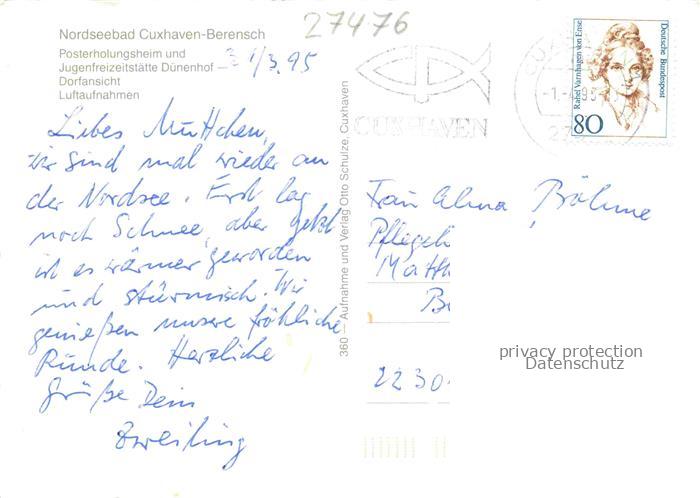 27476
Nordseebad Cuxhaven-Berensch
Posterholungsheim und
Jugenfreizeitstätte Dünenhof
Dorfansicht
Luftaufnahmen
31/3.95
Liebes Muttchen,
wir sind mal wieder an
der Nordsee. Erst lag
noch Schnee, aber jetzt
ist es wärmer geworden
und stürmisch. Wir
genießen unsere fröhliche
Runde. Herzliche
Grüße Dein
Zweiling
360 — Aufnahme und Verlag Otto Schulze, Cuxhaven
CUXHAVEN
CUX
-1.-4.95-
27
Rahel Varnhagen von Ense
Deutsche Bundespost
80
Frau Alma Böhme
Pflegeh
Matth
Be
2230
privacy protection
Datenschutz